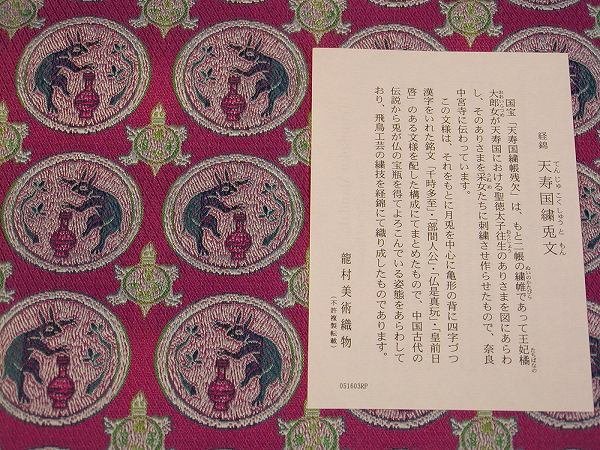 経錦 天寿国繡兎文
てんじゅこくしゅうともん
国宝「天寿国繡帳残欠」は、もと二帳の繡帷であって王妃橘
ぬいのかたびら
たちばなの
大郎女が天寿国における聖徳太子往生のありさまを図にあらわ
おおいらつめ
おうじょう
し、そのありさまを采女たちに刺繡させ作らせたもので、奈良
うねめ
中宮寺に伝わっています。
この文様は、それをもとに月兎を中心に亀形の背に四字づつ
漢字をいれた銘文「千時多至」・「部間人公」・「仏是真玩」・「皇前日
啓」のある文様を配した構成にてまとめたもので、中国古代の
伝説から兎が仏の宝瓶を得てよろこんでいる姿態をあらわして
おり、飛鳥工芸の繡技を経錦にて織り成したものであります。
龍村美術織物
(不許複製転載)
051603RP